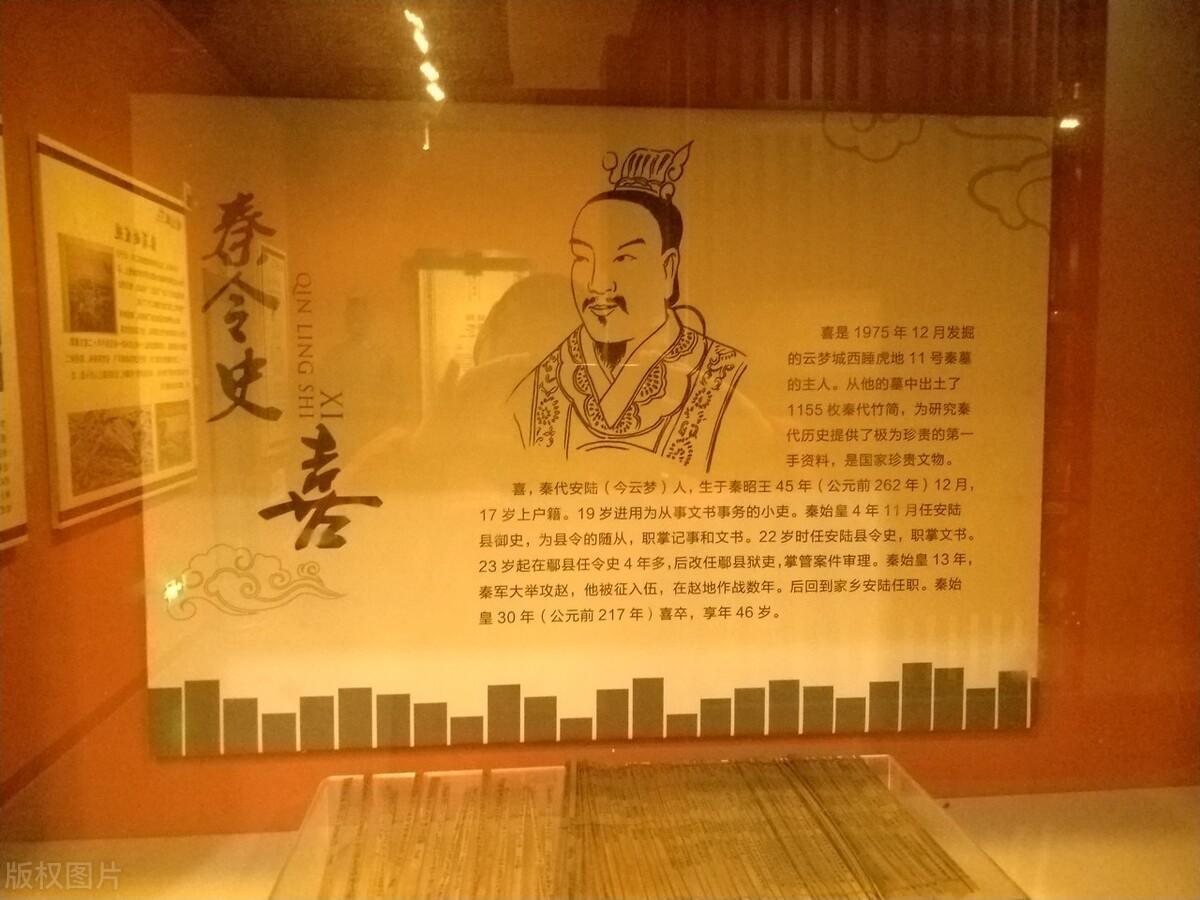 秦令史
QIN LING SHI
喜
XI
喜是 1975 年 12 月发掘
的云梦城西睡虎地 11 号秦墓
的主人。从他的墓中出土了
1155 枚秦代竹简，为研究秦
代历史提供了极为珍贵的第一
手资料，是国家珍贵文物。
喜，秦代安陆（今云梦）人，生于秦昭王 45 年（公元前 262 年）12 月，
17 岁上户籍。19 岁进用为从事文书事务的小吏。秦始皇 4 年 11 月任安陆
县御史，为县令的随从，职掌记事和文书。22 岁时任安陆县令史，职掌文书。
23 岁起在鄢县任令史 4 年多，后改任鄢县狱吏，掌管案件审理。秦始皇 13 年，
秦军大举攻赵，他被征入伍，在赵地作战数年。后回到家乡安陆任职。秦始
皇 30 年（公元前 217 年）喜卒，享年 46 岁。
版权图片